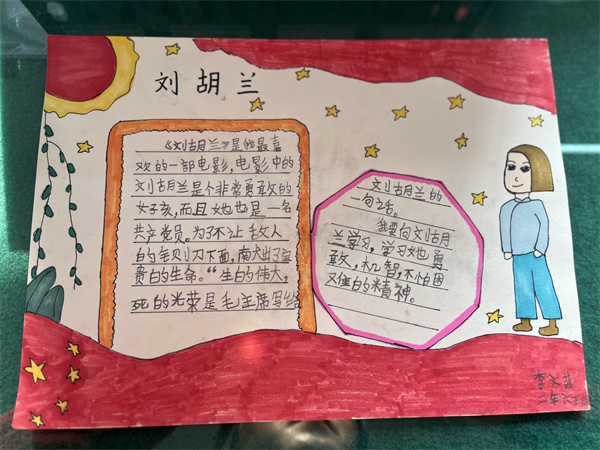 刘胡兰
《刘古月兰》是我最喜
欢的一部电影，电影中的
刘古月兰是个非常勇敢的
女子孩，而且她也是一名
共产党员。为了不让敌人
的毛贝刂刀下面，南犬出了宝
贵的生命。“生的伟大，
死的光荣是毛主席写给
刘古月兰的
一句话。
我要向刘古月
兰学习，学习她勇
敢，机智，不怕困
难的精神。